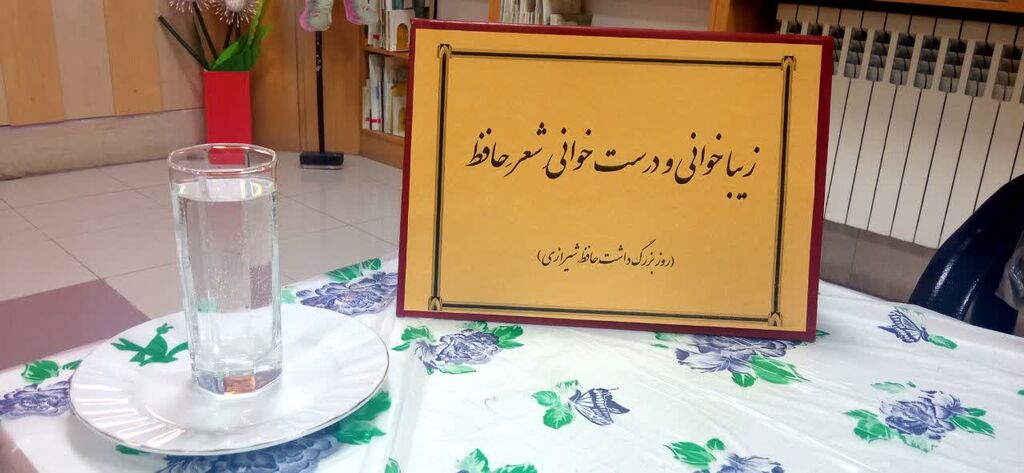 زیباخوانی و درست خوانی شعر حافظ
(روز بزرگ داشت حافظ شیرازی)